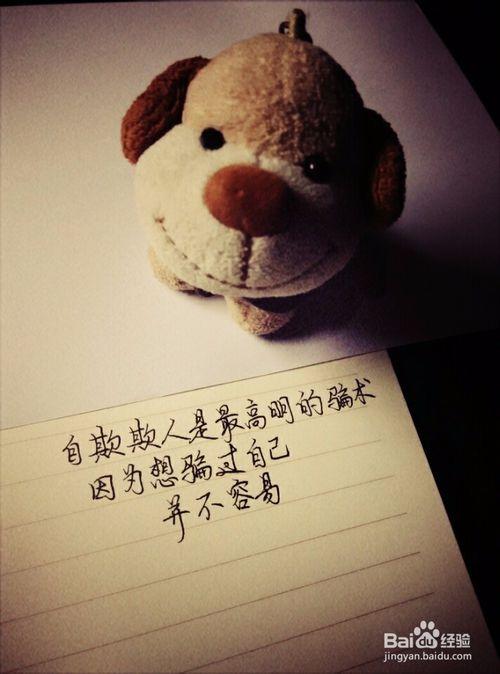 自欺欺人是最高明的骗术
因为想骗过自己
并不容易
Baidu经验
jingyan.baidu.com